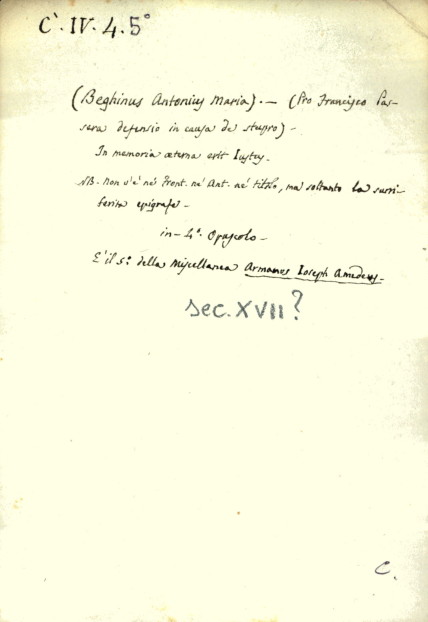 C`. IV. 4. 5°
(Beghinus Antonius Maria). — (Pro Francisco Pas-
sera defensio in causa de stupro) -
In memoria æterna erit Iustus.
NB. Non v'è nè Front. nè Ant. nè titolo, ma soltanto la surri-
ferita epigrafe -
in - 4°. Opuscolo -
E' il 5°. della Miscellanea Armanus Ioseph Amedeus.
sec. XVII?
C.